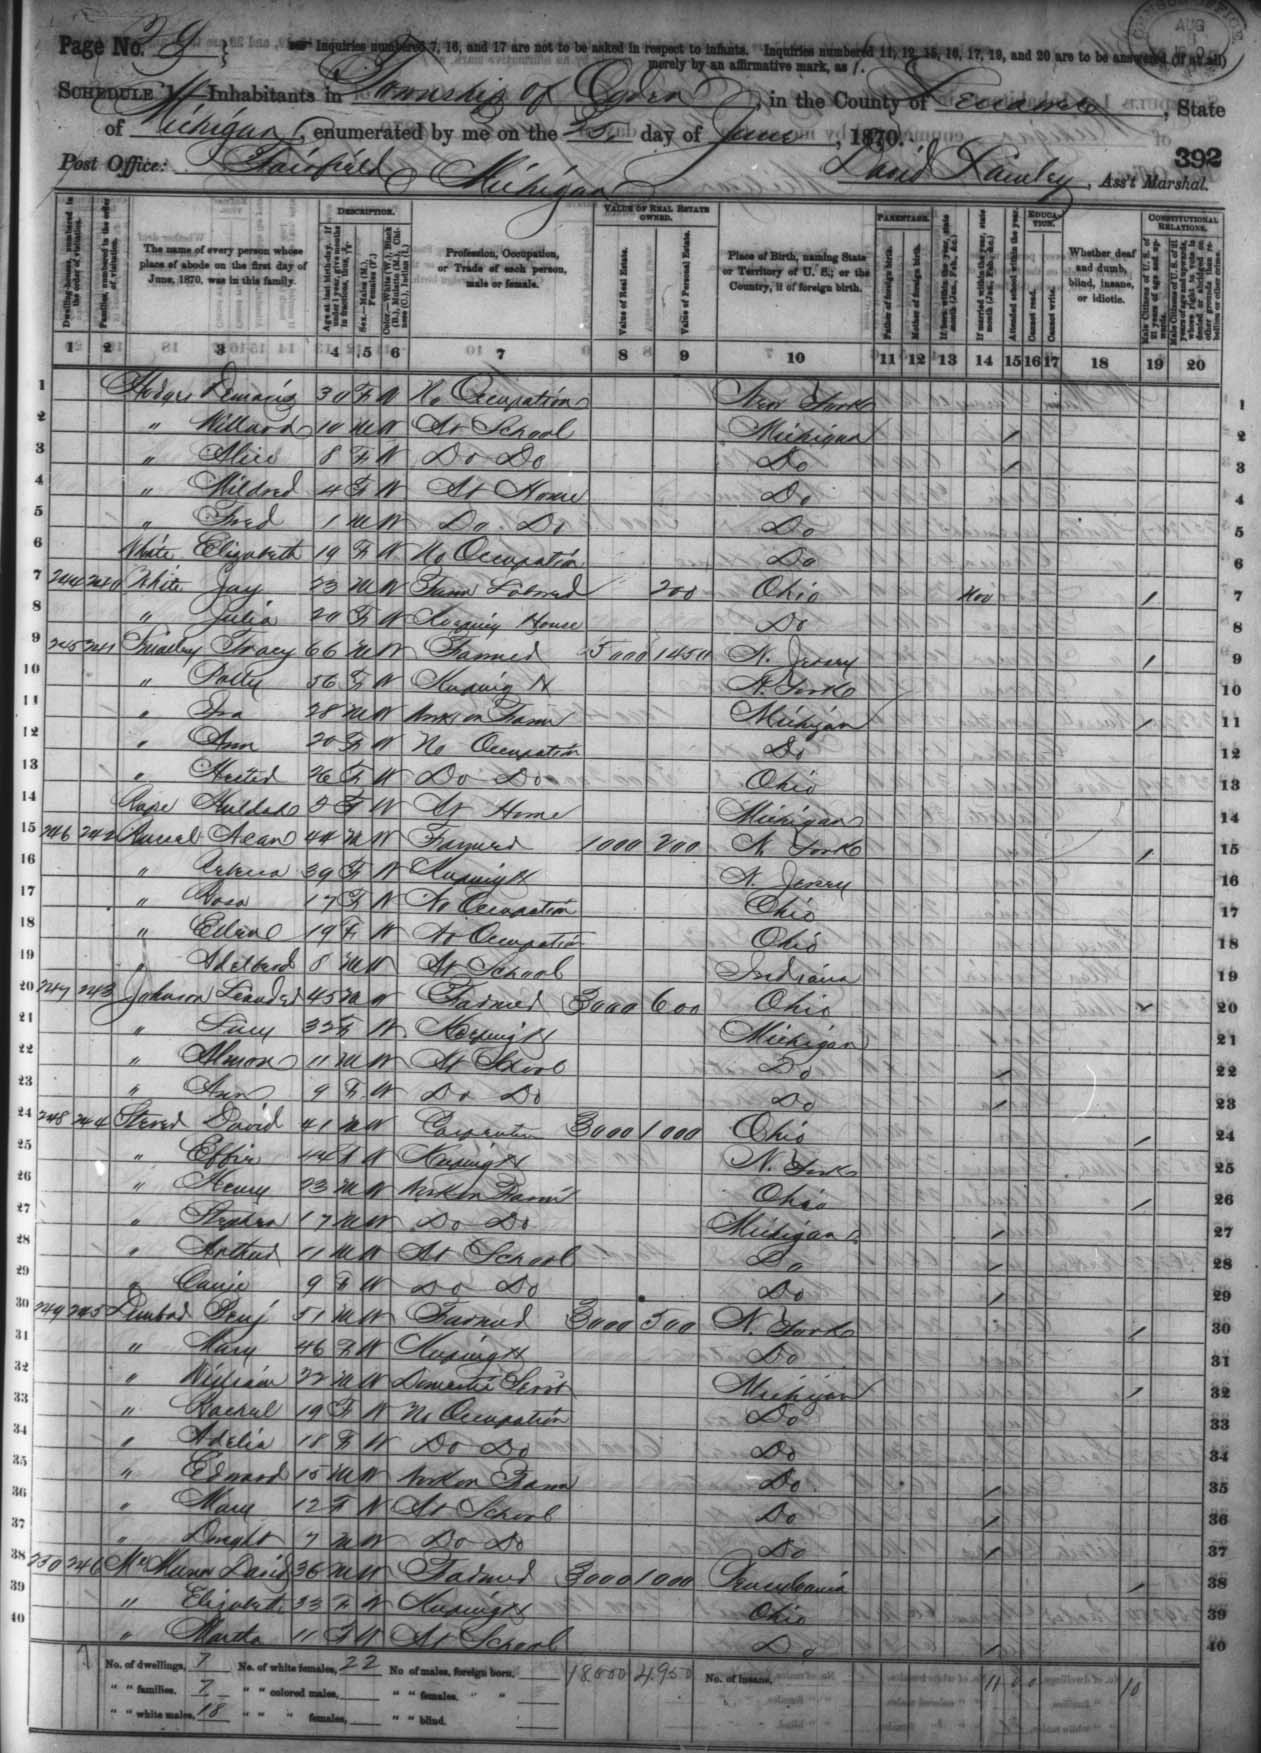 Page No. 29
Inquiries numbered 7, 16, and 17 are not to be asked in respect to infants. Inquiries numbered 11, 12, 15, 16, 17, 19, and 20 are to be answered (if at all) merely by an affirmative mark, as /.
SCHEDULE 1.—Inhabitants in Township of Ogden, in the County of Lenawee, State
of Michigan, enumerated by me on the 25 day of June, 1870.
392
Post Office: Fairfield Michigan David Rawley, Ass't Marshal.
Dwelling-houses, numbered in the order of visitation.
Families, numbered in the order of visitation.
The name of every person whose place of abode on the first day of June, 1870, was in this family.
DESCRIPTION.
Age at last birth-day. If under 1 year, give months in fractions, thus, 3/12
Sex.—Males (M.), Females (F.)
Color.—White (W.), Black (B.), Mulatto (M.), Chinese (C.), Indian (I.)
Profession, Occupation, or Trade of each person, male or female.
VALUE OF REAL ESTATE OWNED.
Value of Real Estate.
Value of Personal Estate.
Place of Birth, naming State or Territory of U. S.; or the Country, if of foreign birth.
PARENTAGE.
Father of foreign birth.
Mother of foreign birth.
If born within the year, state month (Jan., Feb., &c.)
If married within the year, state month (Jan., Feb., &c.)
Attended school within the year.
EDUCATION.
Cannot read.
Cannot write.
Whether deaf and dumb, blind, insane, or idiotic.
CONSTITUTIONAL RELATIONS.
Male Citizens of U. S. of 21 years of age and upwards.
Male Citizens of U. S. of 21 years of age and upwards, whose right to vote is denied or abridged on other grounds than rebellion or other crime.
1 2 3 4 5 6 7 8 9 10 11 12 13 14 15 16 17 18 19 20
1 30 F W No Occupation New York 1
2 " Willard 10 M W At School Michigan / 2
3 " Alice 8 F W Do Do Do / 3
4 " Mildred 4 F W At Home Do 4
5 " Fred 1 M W Do Do Do 5
6 White Elizabeth 19 F W No Occupation Do 6
7 244 240 White Jay 23 M W Farm Laborer 200 Ohio / 7
8 " Julia 20 F W Keeping House Do 8
9 245 241 Tracy 66 M W Farmer 5000 1450 N. Jersey / 9
10 " Polly 56 F W Keeping H N. York 10
11 " Ira 28 M W Work on Farm Michigan / 11
12 " Ann 20 F W No Occupation Do 12
13 " Hester 26 F W Do Do Ohio 13
14 Huldah 2 F W At Home Michigan 14
15 246 242 44 M W Farmer 1000 200 N. York / 15
16 " 39 F W Keeping H N. Jersey 16
17 " Rosa 17 F W No Occupation Ohio 17
18 " 19 F W No Occupation Ohio 18
19 " Adelbert 8 M W At School Indiana 19
20 247 243 Johnson Leander 45 M W Farmer 3000 600 Ohio / 20
21 " Lucy 32 F W Keeping H Michigan 21
22 " Almon 11 M W At School Do / 22
23 " Ann 9 F W Do Do Do / 23
24 248 244 David 41 M W Carpenter 3000 1000 Ohio / 24
25 " Effie 44 F W Keeping H N. York 25
26 " Henry 23 M W Work on Farm Ohio / 26
27 " Stephen 17 M W Do Do Michigan / 27
28 " Arthur 11 M W At School Do / 28
29 " Carrie 9 F W Do Do Do / 29
30 249 245 Benj 51 M W Farmer 3000 500 N. York / 30
31 " Mary 46 F W Keeping H Do 31
32 " William 22 M W Domestic Servt Michigan / 32
33 " Rachel 19 F W No Occupation Do 33
34 " Adelia 18 F W Do Do Do 34
35 " Edward 15 M W Work on Farm Do / 35
36 " Mary 12 F W At School Do / 36
37 " Dwight 7 M W Do Do Do / 37
38 250 246 David 36 M W Farmer 3000 1000 Pensylvania / 38
39 " Elizabeth 33 F W Keeping H Ohio 39
40 " Martha 11 F W At School Do / 40
No. of dwellings, 7 No. of white females, 22 No of males, foreign born, 18000 4950 No. of insane, 11 10
" " families. 7 " " colored males, " " females, " "
" " white males, 18 " " " females, " " blind.